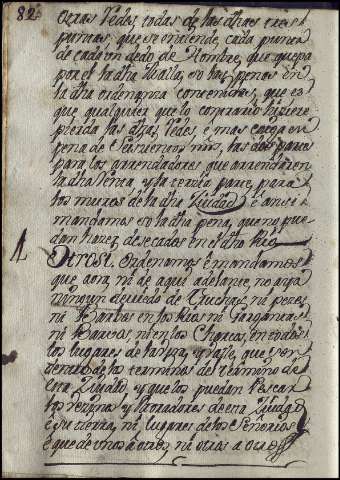 82
otras Redes, todas de las dhas tres
puntas, que se entiende, cada punta
de cada un dedo de Hombre, que quepa
por el la dha Malla, so las penas en
la dha ordenanza contenidas, que es
que qualquier que lo contrario hiziere
pierda las dhas Redes, e mas caiga en
pena de Seiscientos mrs, las dos partes
para los arrendadores que arrendaren
la dha Renta, y la tercia parte, para
los muros de la dha Ziudad, e ansi
mandamos so la dha pena, que no pue
dan hazer desecados en el dho Rio
Otrosi, ordenamos e mandamos
que aora, ni de aqui adelante, no aya
ningun de Truchas, ni peces,
ni Barbos en los Rios, ni Gargantas
ni Barcas ni en los Charcos, en todos
los lugares de que son
dentro de los terminos del termino de
esta Ziudad, y que los puedan Pescar
los vezinos y Moradores de esta Ziudad
e su tierra, ni lugares de los Señorios
e que de unos a otros, ni otros a otros